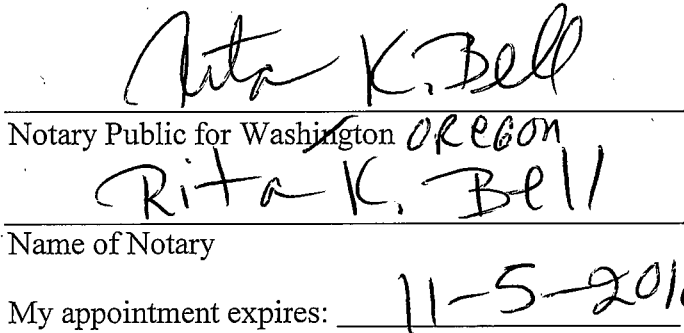 Rita K. Bell
Notary Public for Washington OREGON
Rita K. Bell
Name of Notary
My appointment expires: 11-5-201